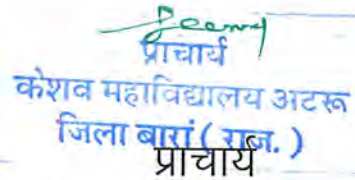 प्राचार्य
केशव महाविद्यालय अटरू
जिला बारां ( राज. )
प्राचार्य